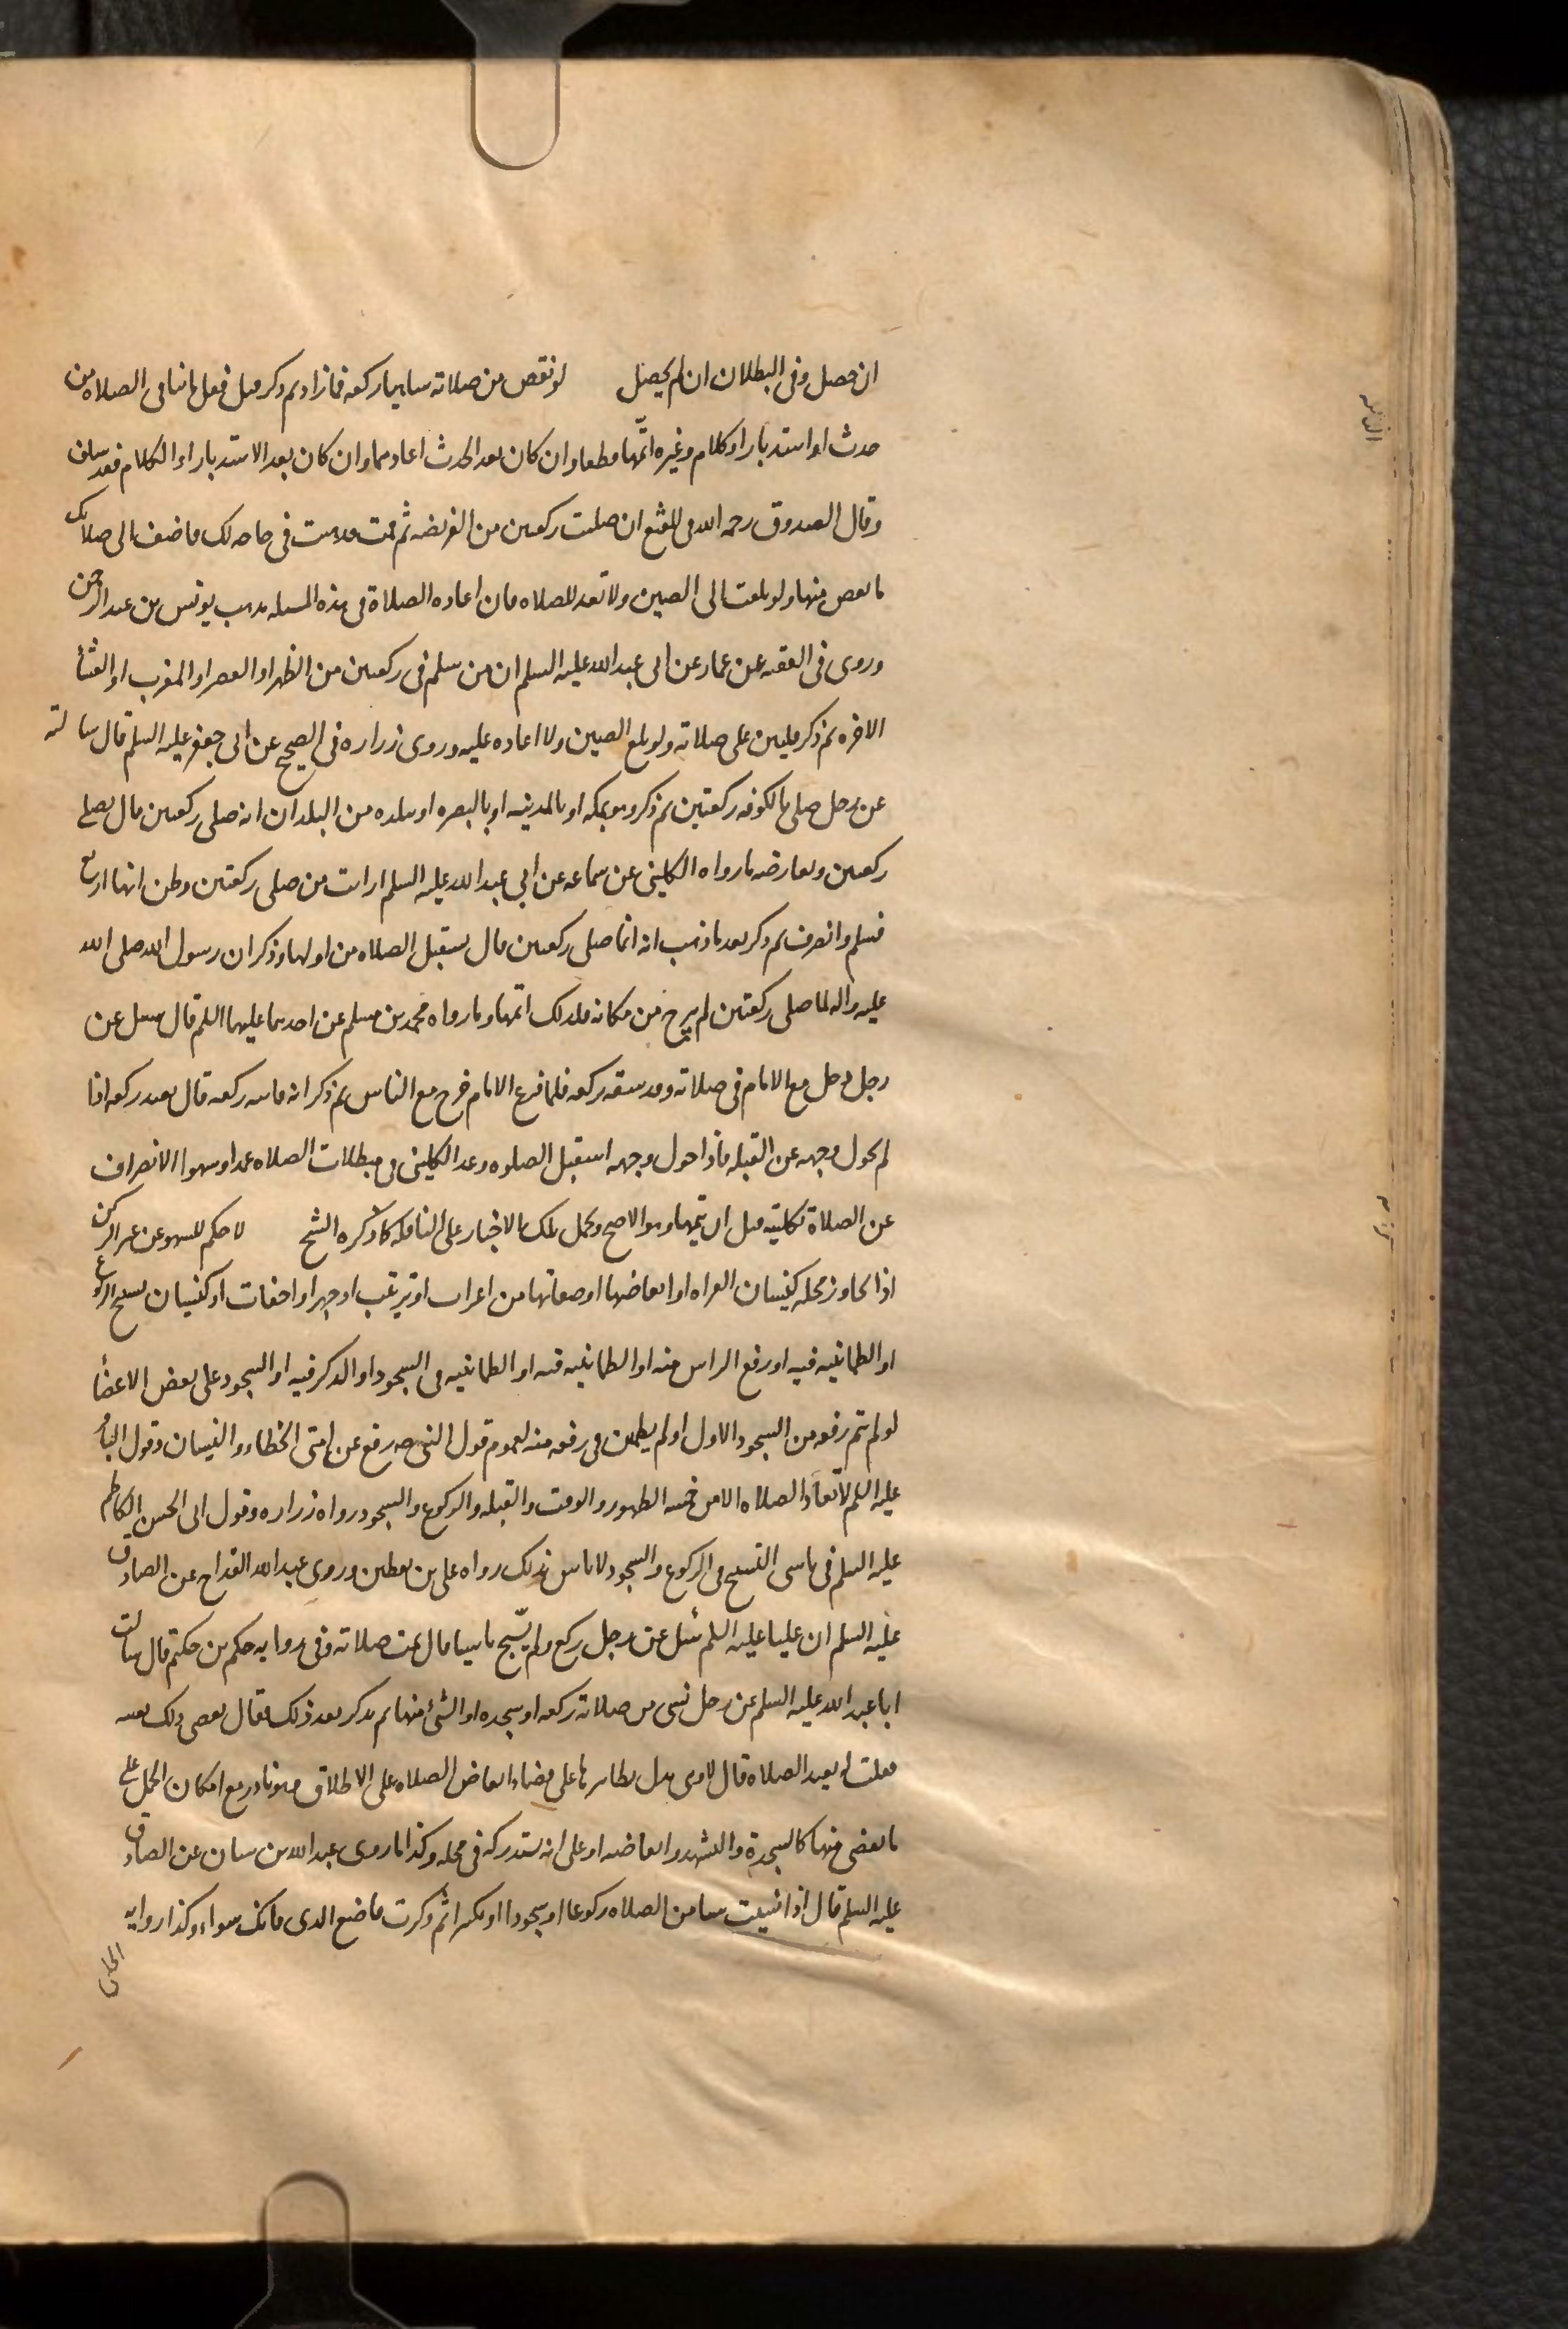 ان حصل وفى البطلان ان لم يحصل لو نقص من صلاته ساهيا ركعه فما زاد ثم ذكر قبل فعل ما ينافى الصلاه من
حدث او استدبار او كلام وغيره اتمّها قطعا وان كان بعد الحدث اعادهما وان كان بعد الاستدبار او الكلام فقد سلف
وقال الصدوق رحمه الله فى المقنع ان صليت ركعتين من الفريضه ثم قمت فذهبت فى حاجه لك فاضف الى صلاتك
ما نقص منها ولو بلغت الى الصين ولا تعد الصلاه فان اعاده الصلاة فى هذه المسله مذهب يونس بن عبد الرحمن
وروى فى الفقيه عن عمار عن ابى عبد الله عليه السلم ان من سلم فى ركعتين من الظهر او العصر او المغرب او العشأ
الاخره ثم ذكر فليبن على صلاته ولو بلغ الصين ولا اعاده عليه وروى زراره فى الصحيح عن ابى جعفر عليه السلم قال سالته
عن رجل صلى بالكوفه ركعتين ثم ذكر وهو بمكه او بالمدينه او بالبصره او ببلده من البلدان انه صلى ركعتين قال يصلى
ركعتين ويعارضه ما رواه الكلينى عن سماعه عن ابي عبد الله عليه السلم ارايت من صلى ركعتين وظن انها اربع
فسلم وانصرف ثم ذكر بعد ما ذهب انه انما صلى ركعتين قال يستقبل الصلاه من اولها وذكر ان رسول الله صلى الله
عليه واله لما صلى ركعتين لم يبرح من مكانه فلذلك اتمها وما رواه محمد بن مسلم عن احدهما عليهما السلم قال سئل عن
رجل دخل مع الامام فى صلاته وقد سبقه بركعه فلما فرغ الامام خرج مع الناس ثم ذكر انه فاته ركعه قال يعيد ركعه اذا
لم يحول وجهه عن القبله فاذا حول وجهه استقبل الصلوه وعد الكلينى فى مبطلات الصلاه عمدا وسهوا الانصراف
عن الصلاة بكليته قبل ان يتمها وهو الاصح ويحمل تلك الاخبار على النافله كما ذكره الشيخ لا حكم للسهو عن غير الركن
اذا تجاوز محله كنسيان القراه او ابعاضها او صفاتها من اعراب او ترتيب او جهر او اخفات او كنسيان تسبيح الركوع
او الطمانينه فيه او رفع الراس منه او الطمانينه فيه او الطمانينه فى السجود او الذكر فيه او السجود على بعض الاعضأ
لو لم يتم رفعه من السجود الاول او لم يطمئن فى رفعه منه لعموم قول النبى صه رفع عن امتى الخطاء والنسيان وقول الباقر
عليه السلم لا تعاد الصلاه الا من خمسه الطهور والوقت والقبله والركوع والسجود رواه زراره وقول ابى الحسن الكاظم
عليه السلم فى ناسى التسبيح فى الركوع والسجود لا باس بذلك رواه على بن يقطين وروى عبد الله القداح عن الصادق
عليه السلم ان عليا عليه السلم سئل عن رجل ركع ولم يسبّح ناسيا قال تمت صلاته وفى روايه حكم بن حكيم قال سالت
ابا عبد الله عليه السلم عن رجل نسى من صلاته ركعه او سجده او الشئ منها ثم يذكر بعد ذلك فقال يقضى ذلك بعينه
فقلت ايعيد الصلاة قال لا وهى تدل بظاهرها على قضاء ابعاض الصلاه على الاطلاق وهو نادر مع امكان الحمل على
ما يقضى منها كالسجدة والتشهد وابعاضه او على انه يستدركه فى محله وكذا ما روى عبد الله بن سنان عن الصادق
عليه السلم قال اذا نسيت شيا من الصلاه ركوعا او سجودا او تكبيرا ثم ذكرت فاصنع الذى فاتك سواء وكذا روايه
الحلبى